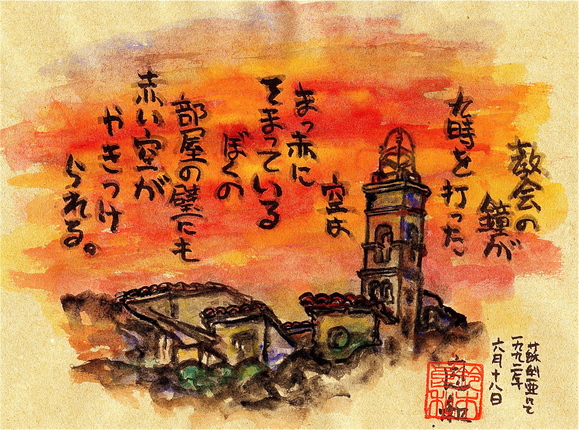 教会の
鐘が
九時を打った
空は
まっ赤に
そまっている
ぼくの
部屋の壁にも
赤い空が
やきつけ
られる。
にて
一九九二年
六月十八日